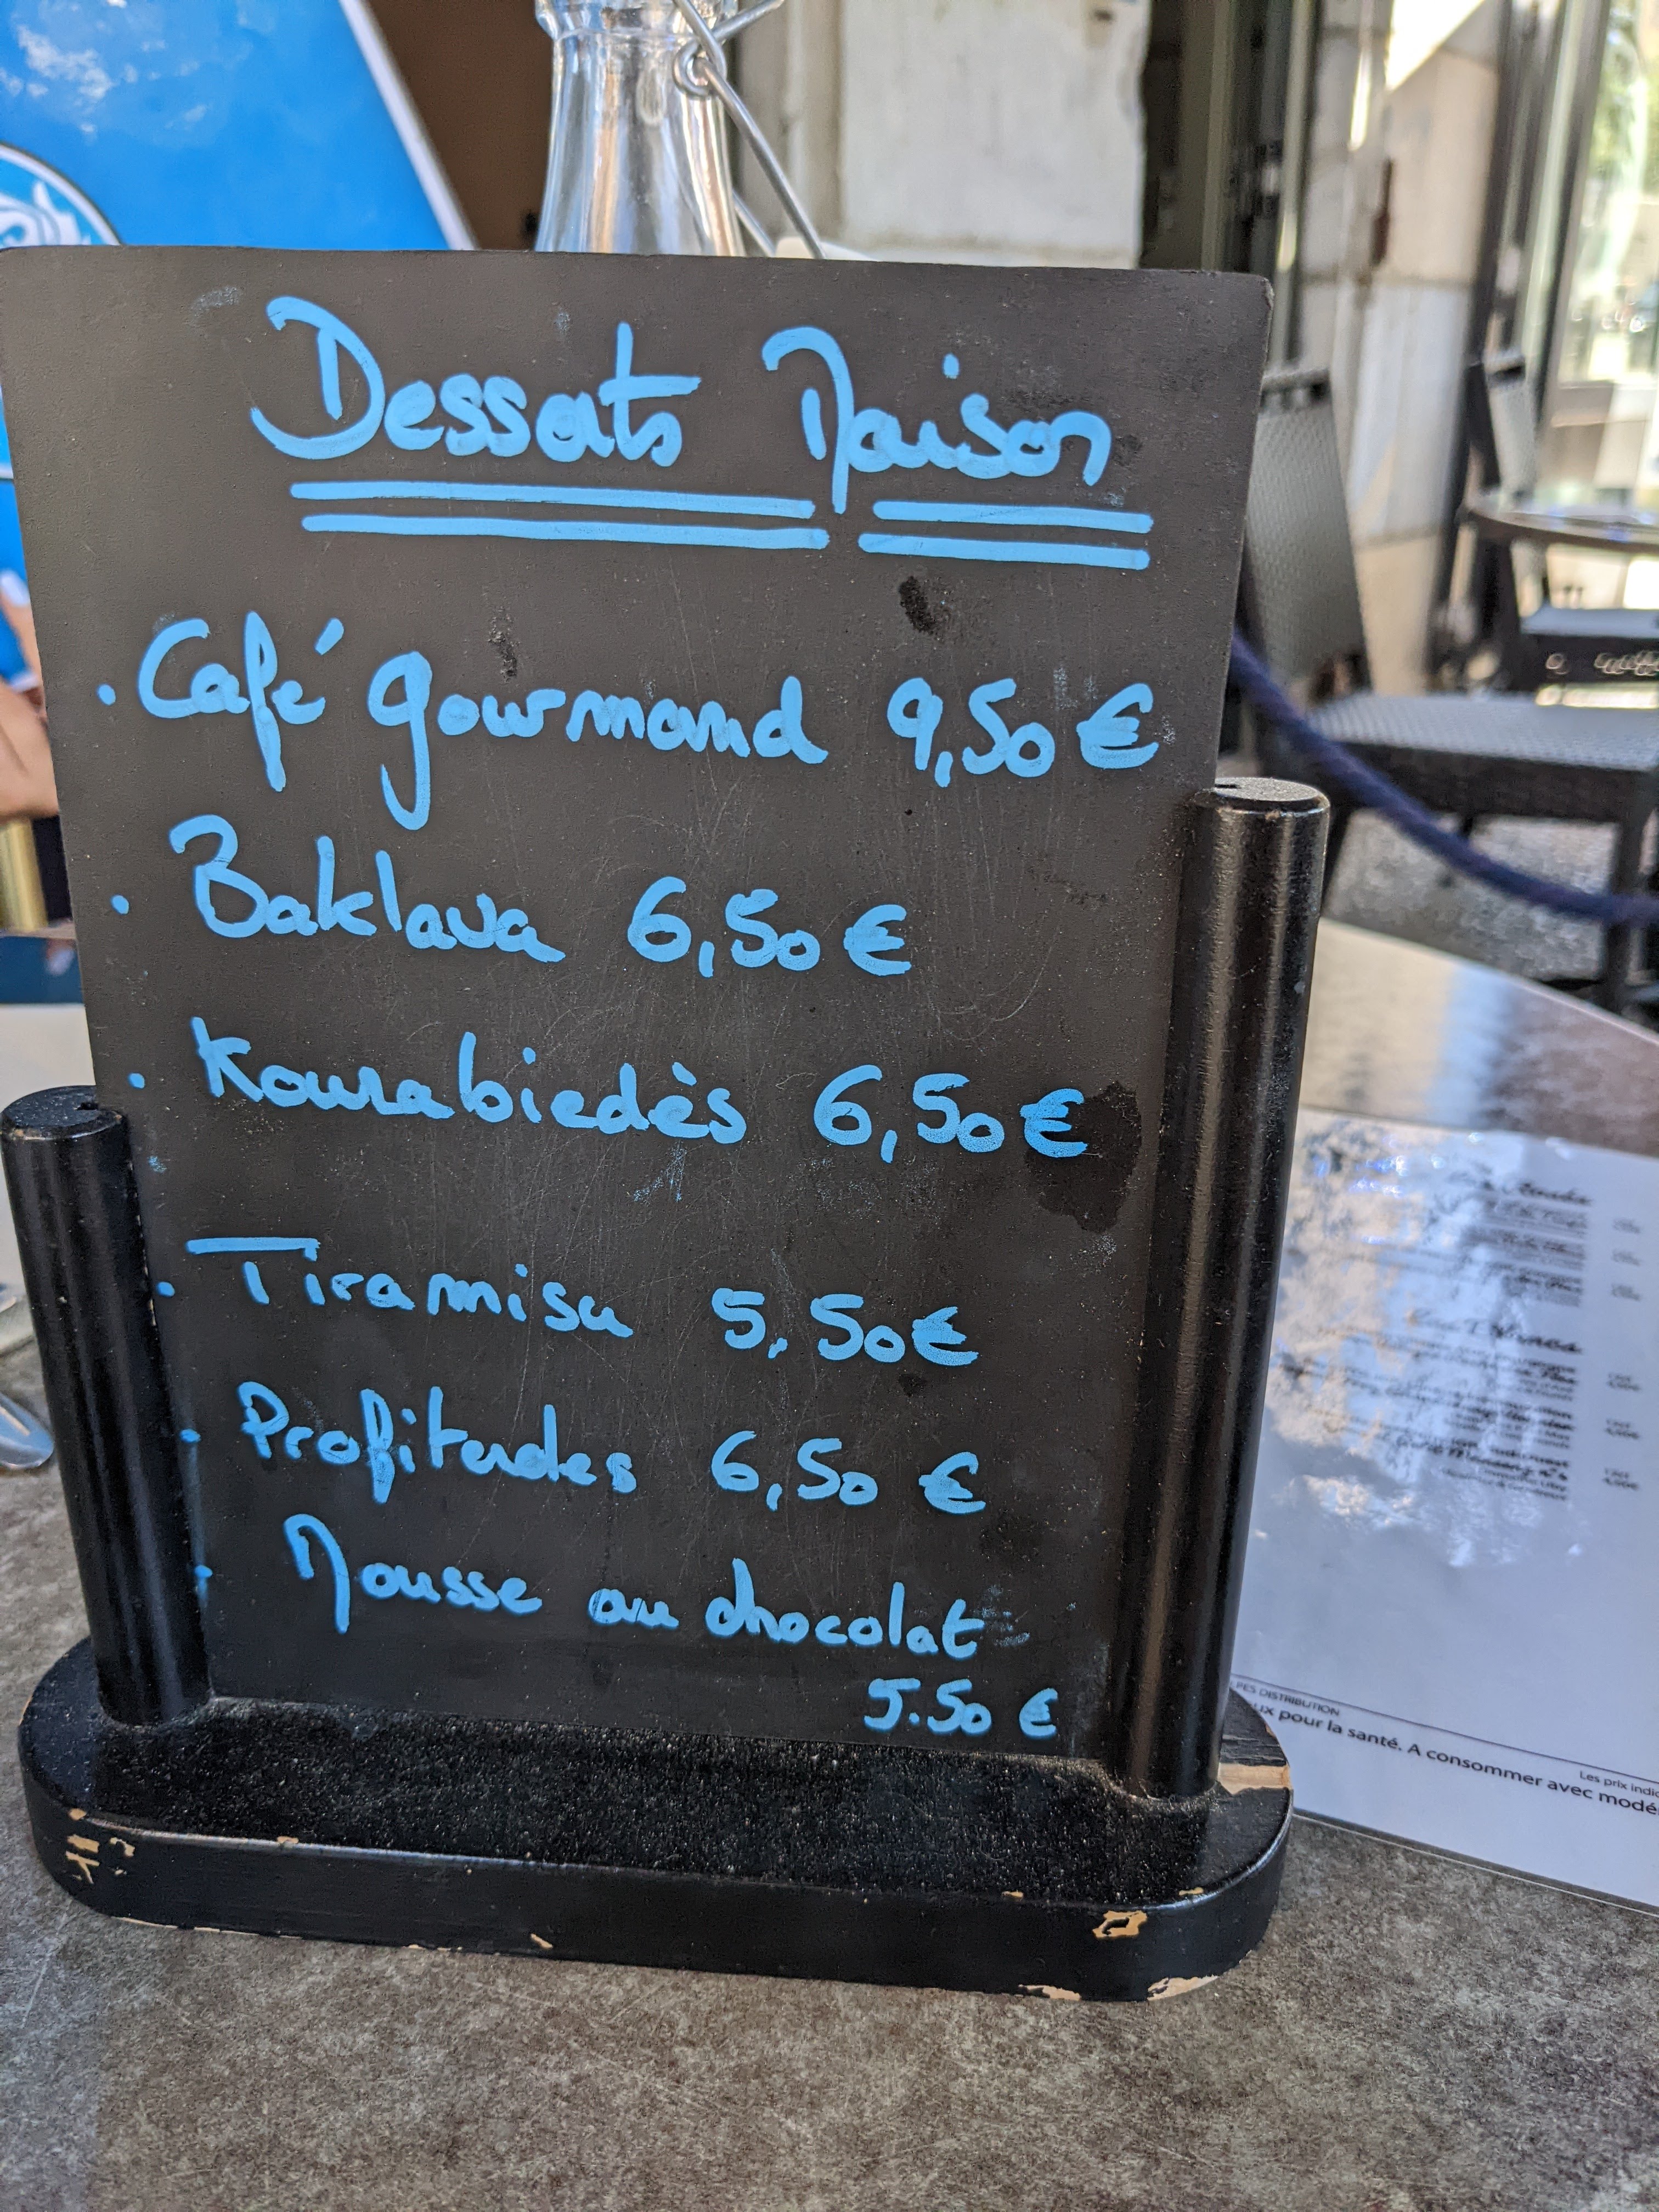 Desserts Maison
· Café gourmand 9,50 €
· Baklava 6,50 €
· Kourabiedès 6,50 €
· Tiramisu 5,50 €
· Profiteroles 6,50 €
· Mousse au chocolat
5.50 €
PES DISTRIBUTION
ux pour la santé. A consommer avec modé
Les prix indi